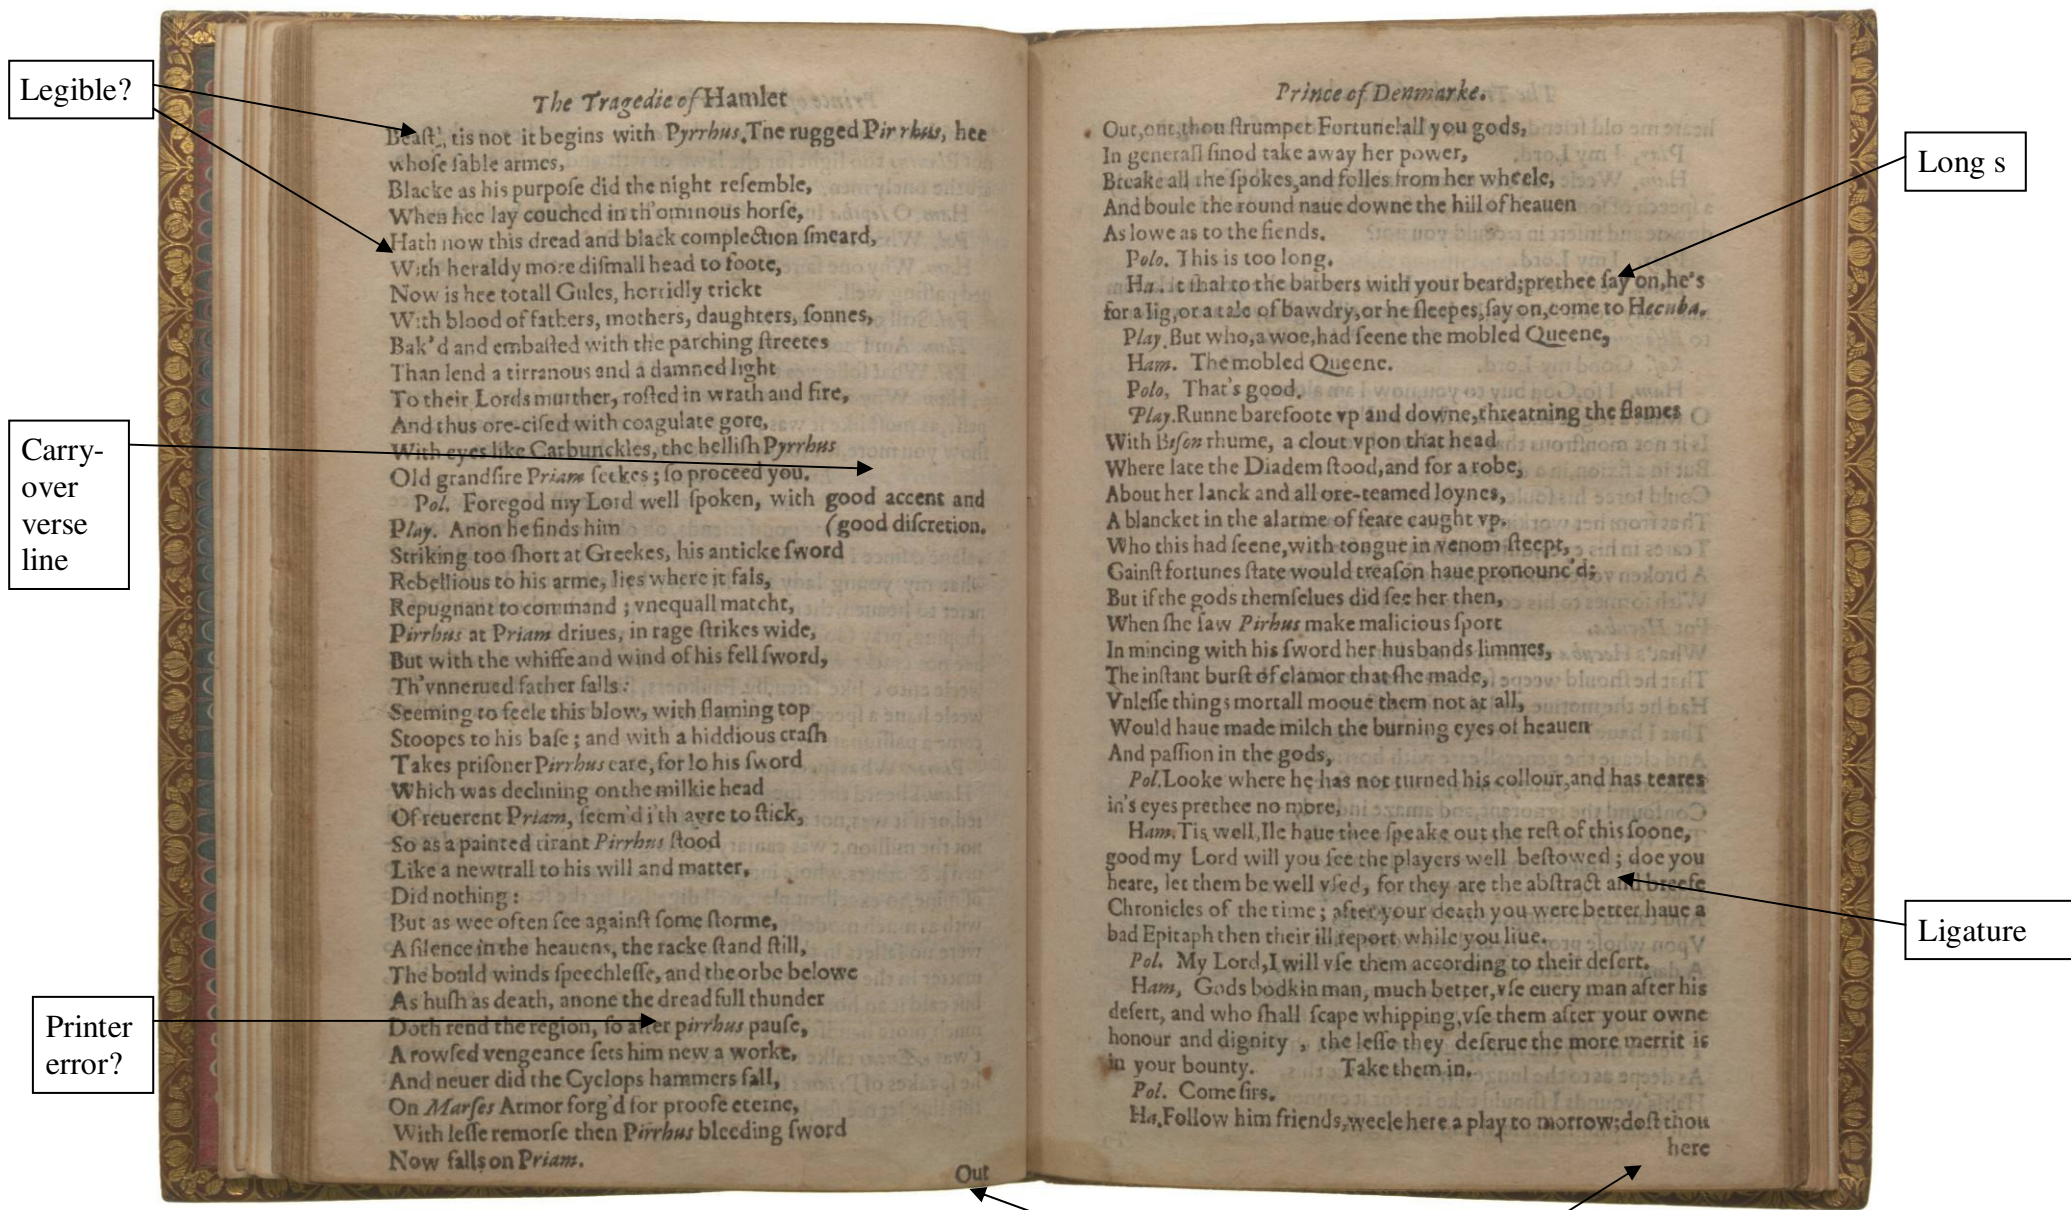 Legible?
Carry-
over
verse
line
Printer
error?
The Tragedie of Hamlet
Beaſt', tis not it begins with Pyrrhus. Tne rugged Pir rhus, hee
whoſe ſable armes,
Blacke as his purpoſe did the night reſemble,
When hee lay couched in th'ominous horſe,
Hath now this dread and black complection ſmeard,
With heraldy more diſmall head to foote,
Now is hee totall Gules, horridly trickt
With blood of fathers, mothers, daughters, ſonnes,
Bak'd and embaſted with the parching ſtreetes
Than lend a tirranous and a damned light
To their Lords murther, roſted in wrath and fire,
And thus ore-ciſed with coagulate gore,
With eyes like Carbunckles, the helliſh Pyrrhus
Old grandſire Priam ſeekes; ſo proceed you.
Pol. Foregod my Lord well ſpoken, with good accent and
Play. Anon he finds him (good diſcretion.
Striking too ſhort at Greekes, his anticke ſword
Rebellious to his arme, lies where it fals,
Repugnant to command; vnequall matcht,
Pirrhus at Priam driues, in rage ſtrikes wide,
But with the whiffe and wind of his fell ſword,
Th'vnnerued father falls:
Seeming to feele this blow, with flaming top
Stoopes to his baſe; and with a hiddious craſh
Takes priſoner Pirrhus eare, for lo his ſword
Which was declining on the milkie head
Of reuerent Priam, ſeem'd i'th ayre to ſtick,
So as a painted tirant Pirrhus ſtood
Like a newtrall to his will and matter,
Did nothing:
But as wee often ſee againſt ſome ſtorme,
A ſilence in the heauens, the racke ſtand ſtill,
The bould winds ſpeechleſſe, and the orbe belowe
As huſh as death, anone the dreadfull thunder
Doth rend the region, ſo after pirrhus pauſe,
A rowſed vengeance ſets him new a worke,
And neuer did the Cyclops hammers fall,
On Marſes Armor forg'd for proofe eterne,
With leſſe remorſe then Pirrhus bleeding ſword
Now falls on Priam.
Out
Prince of Denmarke.
Out, out, thou ſtrumpet Fortune! all you gods,
In generall ſinod take away her power,
Breake all the ſpokes, and folles from her wheele,
And boule the round naue downe the hill of heauen
As lowe as to the fiends.
Polo. This is too long.
Ha. it ſhal to the barbers with your beard; prethee ſay on, he's
for a Iig, or a tale of bawdry, or he ſleepes, ſay on, come to Hecuba.
Play. But who, a woe, had ſeene the mobled Queene,
Ham. The mobled Queene.
Polo, That's good.
Play. Runne barefoote vp and downe, threatning the flames
With Biſon rhume, a clout vpon that head
Where late the Diadem ſtood, and for a robe,
About her lanck and all ore-teamed loynes,
A blancket in the alarme of feare caught vp.
Who this had ſeene, with tongue in venom ſteept,
Gainſt fortunes ſtate would treaſon haue pronounc'd;
But if the gods themſelues did ſee her then,
When ſhe ſaw Pirhus make malicious ſport
In mincing with his ſword her husbands limmes,
The inſtant burſt of clamor that ſhe made,
Vnleſſe things mortall mooue them not at all,
Would haue made milch the burning eyes of heauen
And paſſion in the gods,
Pol. Looke where he has not turned his collour, and has teares
in's eyes prethee no more,
Ham. Tis well, Ile haue thee ſpeake out the reſt of this ſoone,
good my Lord will you ſee the players well beſtowed; doe you
heare, let them be well vſed, for they are the abſtract and breefe
Chronicles of the time; after your death you were better haue a
bad Epitaph then their ill report while you liue.
Pol. My Lord, I will vſe them according to their deſert.
Ham, Gods bodkin man, much better, vſe euery man after his
deſert, and who ſhall ſcape whipping, vſe them after your owne
honour and dignity , the leſſe they deſerue the more merrit is
in your bounty. Take them in.
Pol. Come ſirs.
Ha. Follow him friends, weele here a play to morrow; doſt thou
here
Long s
Ligature